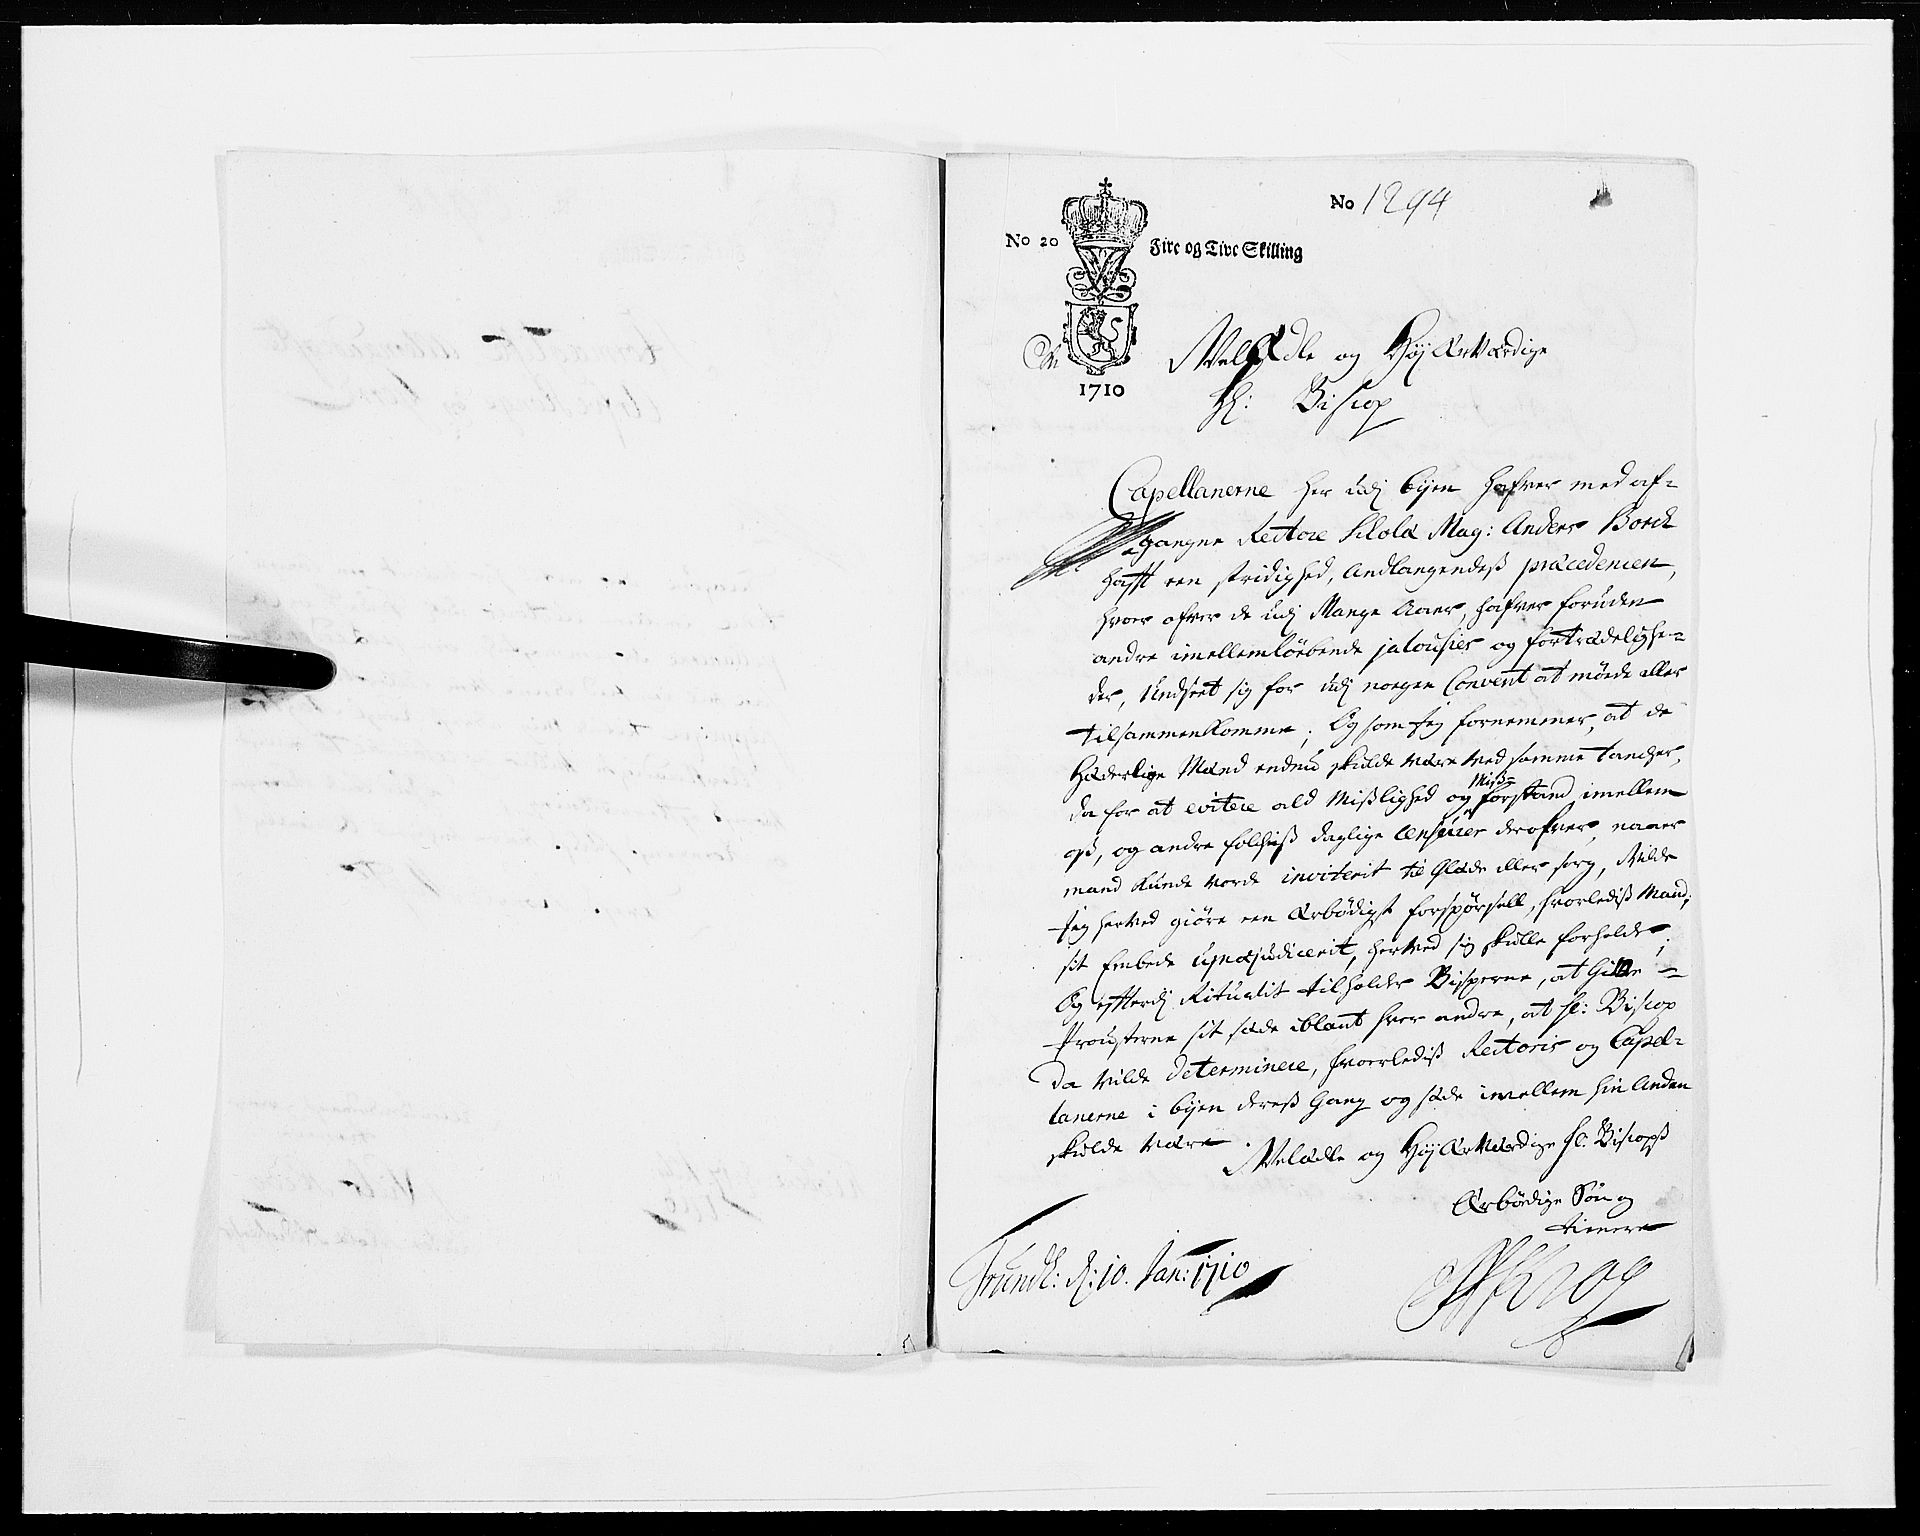 No 1294
No 20
Fire og Tive Skilling
1710
WelÆdle og HøjÆrværdige
Hr: Biscop
Capellanerne her udj byen hafver med af-
gangne Rectore Scholæ Mag: Anders Borch
hafft een stridighed, Andlangendeß præcedencen,
hvor ofver de udj Mange Aaer, hafver foruden
andre imellemlöbende jalousier og fortrædelighe-
der, Undseet sig for udj nogen Convent at möede eller
tilsammenkomme; Og som jeg fornemmer, at de
Hæderlige Mænd endnu skulde være ved samme tancher,
da for at evitere ald Mißlighed og Miß-forstand imellem
oß, og andre folchiß daglige censurer derofver, naaer
mand kunde vorde inviterit til Glæde eller sorg, Vilde
jeg herved giöre een Ærbödigst forspörsell, hvorlediß Mand,
sit Embede upræjudicerit, herved sig skulle forholde;
Og efftterdj Ritualit tilholder Bisperne, at Give
Prousterne sit sæde iblant hver andre, at Hr: Biscop
da vilde determinere, hvorlediß Rectoris og Capel-
lanerne i byen dereß Gang og sæde imellem hin Anden
skulde være.
Welædle og HøjÆrværdige Hr. Biscopß
Ærbödige Sön og
tienere
Trundh: d: 10. Jan: 1710